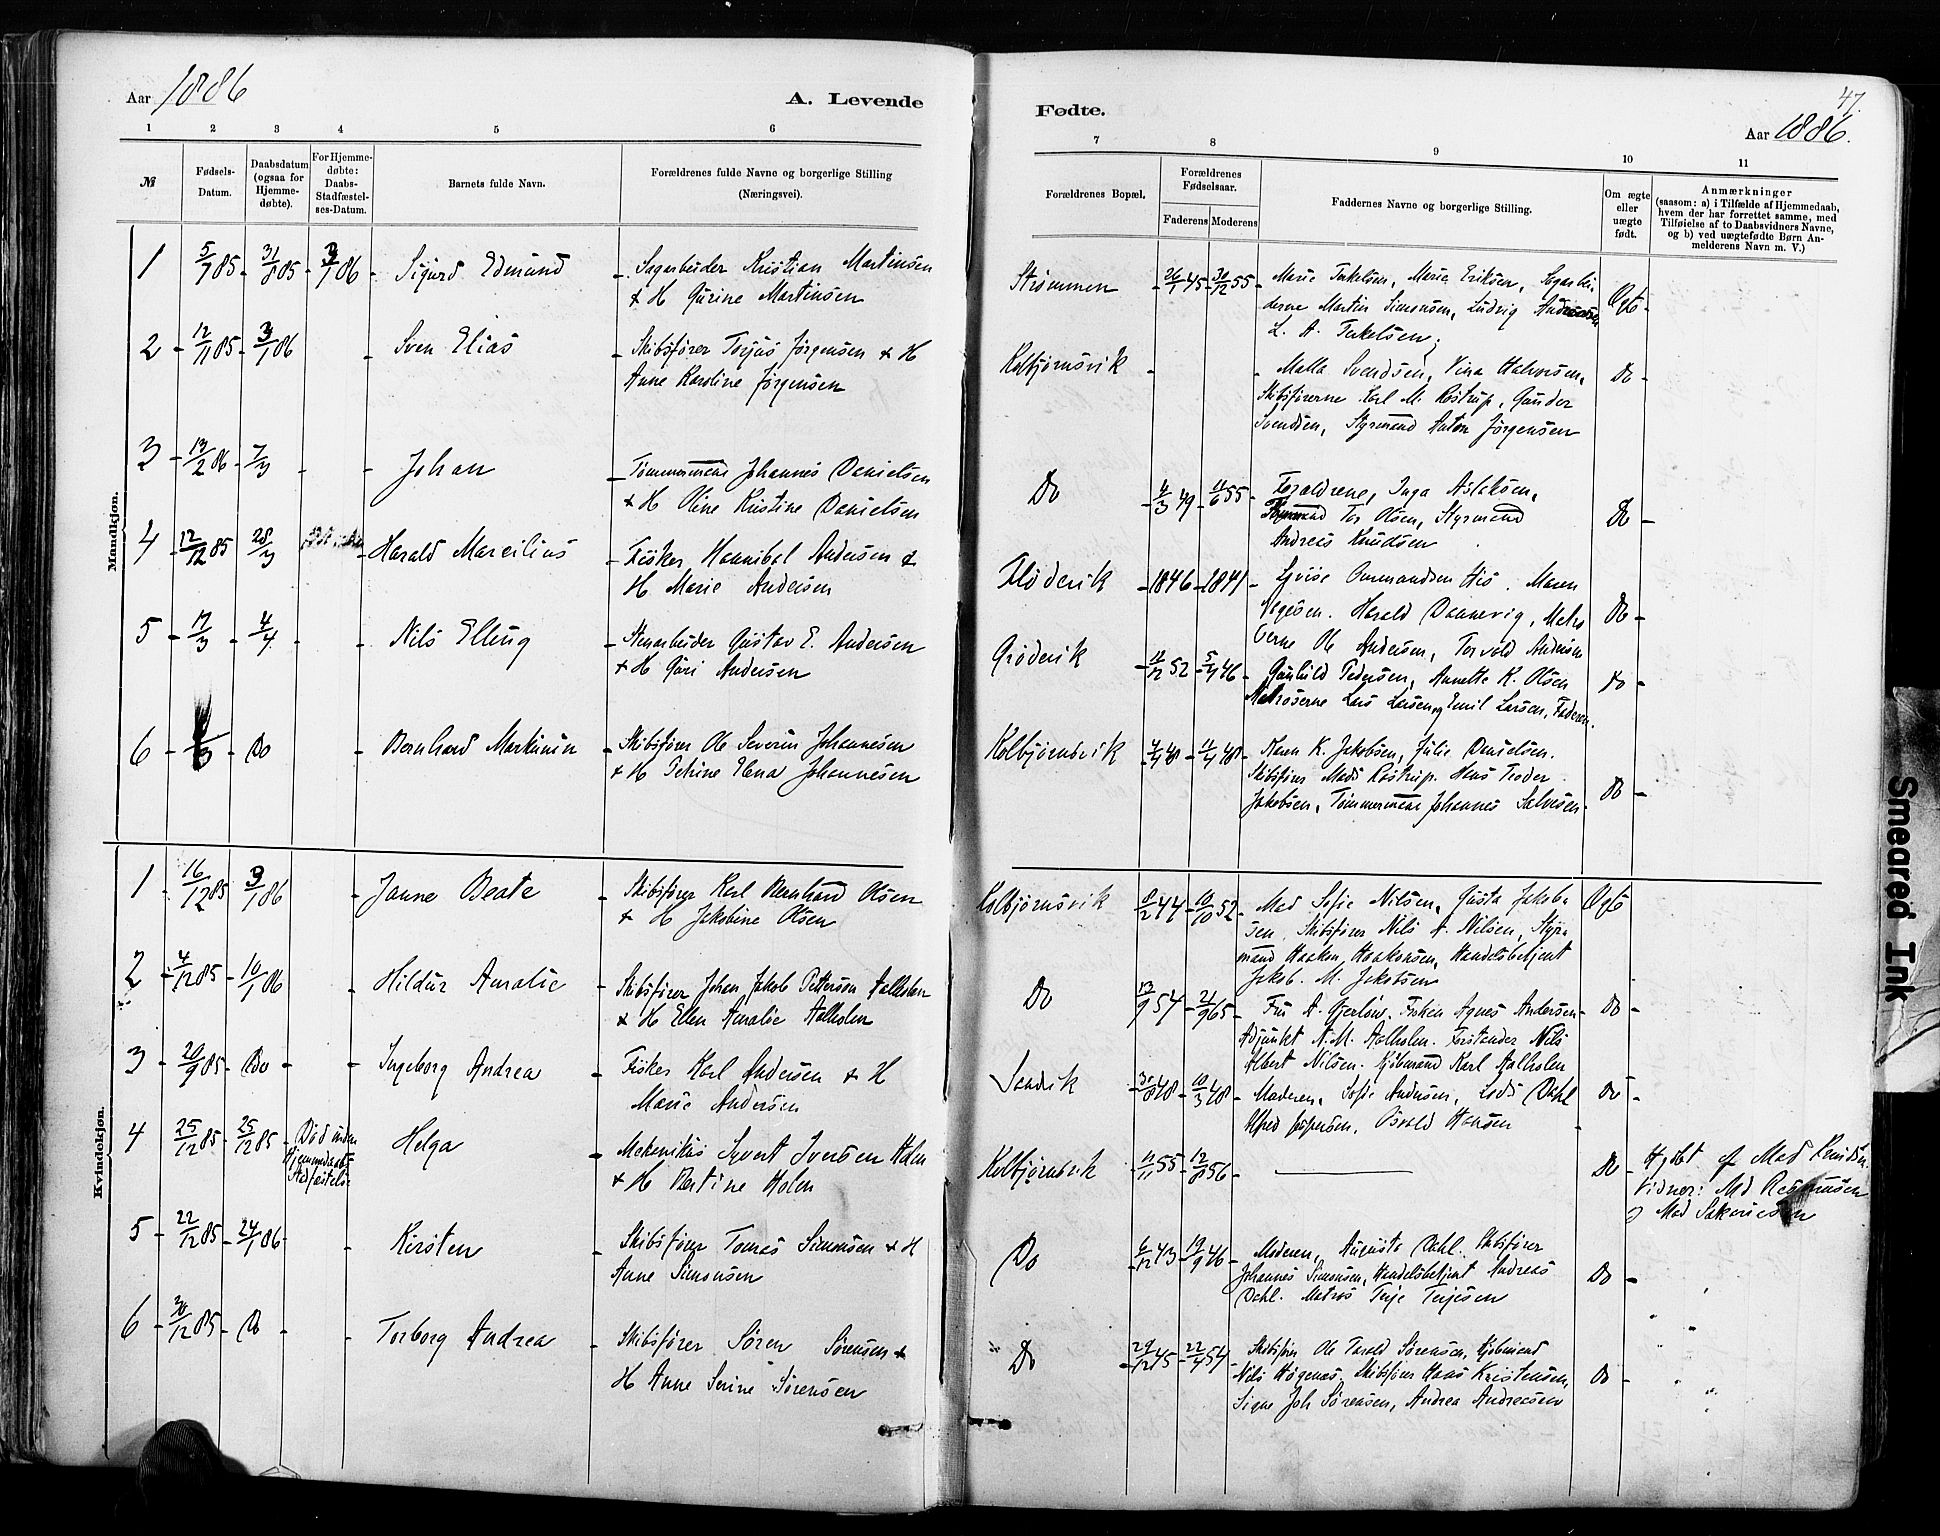 Aar 1886
A. Levende
1 2 3 4 5 6
№
Fødsels-
Datum.
Daabsdatum
(ogsaa for
Hjemme-
døbte).
For Hjemme-
døbte:
Daabs-
Stadfæstel-
ses-Datum.
Barnets fulde Navn.
Forældrenes fulde Navne og borgerlige Stilling
(Næringsvei).
Mandkjøn.
1 5/7 85 31/8 85 3/1 86 Sigurd Edmund Sagarbeider Kristian Martinsen
& H Gurine Martinsen
2 12/11 85 3/1 86 Sven Elias Skibsfører Torjus Jørgensen & H
Anne Karoline Jørgensen
3 13/2 86 7/3 Johan Tømmermand Johannes Danielsen
& H Oline Kristine Danielsen
4 12/12 85 28/3 Harald Marcilius Fisker Hannibal Andersen &
H Marie Andersen
5 17/3 4/4 Nils Elling Stenarbeider Gustav E. Andersen
& H Guri Andersen
6 /3 Do Bernhard Martinin Skibsfører Ole Severin Johannesen
& H Petrine Elena Johannesen
Kvindekjøn.
1 16/12 85 3/1 86 Janne Beate Skibsfører Karl Bernhard Olsen
& H Jakobine Olsen
2 4/12 85 10/1 86 Hildur Amalie Skibsfører Johan Jakob Pettersen Aalholm
& H Ellen Amalie Aalholm
3 20/9 85 Do Ingeborg Andrea Fisker Karl Andersen & H
Marie Andersen
4 25/12 85 25/12 85 Død inden
Hjemmedaabs
Stadfæstelse
Helga Mekanikus Syvert Iversen Holm
& H Bertine Holm
5 22/12 85 24/1 86 Kirsten Skibsfører Tomas Simonsen & H
Anne Simonsen
6 30/12 85 Do Torborg Andrea Skibsfører Søren Sørensen &
H Anne Serine Sørensen
47.
Fødte.
Aar 1886.
7 8 9 10 11
Forældrenes Bopæl.
Forældrenes
Fødselsaar.
Faderens Moderens
Faddernes Navne og borgerlige Stilling.
Om ægte
eller
uægte
født.
Anmærkninger
(saasom: a) i Tilfælde af Hjemmedaab,
hvem der har forrettet samme, med
Tilføielse af to Daabsvidners Navne,
og b) ved uægtefødte Børn An-
melderens Navn m. V.)
Strømmen 26/1 45 30/12 55 Marie Terkelsen, Maria Eriksen, Sagarbei-
derne Martin Simonsen, Ludvig Andreassen
L. A. Terkelsen. Ægte
Kolbjørnsvik Malla Svendsen, Vina Halvorsen,
Skibsførerne Karl M. Rostrup, Gunder
Svendsen, Styrmand Anton Jørgensen Do
Do 4/3 49 11/6 55 Forældrene, Inga Aslaksen,
Tor Olsen, Styrmand
Andreas Knudsen Do
Fløderik 1846 1841 Lovise Ommundsen His. Maren
Harald Dannevig, Matro
serne Ole Andersen, Torvald Andersen Do
Grøderik 11/12 52 5/4 46 Gunhild Pedersen, Annette K. Olsen
Matroserne Lars Larsen og Emil Larsen, Faderen. Do
Kolbjørnsvik 4/4 48 11/4 48 Karen K. Jakobsen, Julie Danielsen.
Skibsfører Mads Rostrup. Hans Peder
Jakobsen, Tømmermand Johannes Salvesen. Do
Kolbjørnsvik 8/2 44 10/10 52 Mad Sofie Nilsen, Gusta Jakob-
sen, Skibsfører Nils A. Nilsen, Styr-
mand Haaken Haakonsen, Handelsbetjent
Jakob. M. Jakobsen Ægte
Do 13/9 54 21/9 65 Fru A. Gjerløw. Frøken Agnes Andersen
Adjunkt N. M. Aalholm. Forstander Nils
Albert Nilsen. Kjøbmand Karl Aalholm Do
Sandvik 31/8 48 10/3 48 Moderen, Sofie Andersen, Lovis Dahl
Alfred Jespersen, Osvald Hansen Do
Kolbjørnsvik 11/11 55 12/8 56 Do Hjdbt af Mad Knudsen
Vidner: Md Rasmussen
& Mad Sakariesen
Do 6/12 43 19/9 46 Moderen, Augusta Dahl. Skibsfører
Johannes Simonsen, Handelsbetjent Andreas
Dahl. Matros Terje Terjesen Do
Do 29/12 45 22/4 54 Skibsfører Ole Tarald Sørensen, Kjøbmand
Nils Høgenæs. Skibsfører Hans Kristensen,
Signe Joh Sørensen, Andrea Andreasen Do
Smeared Ink